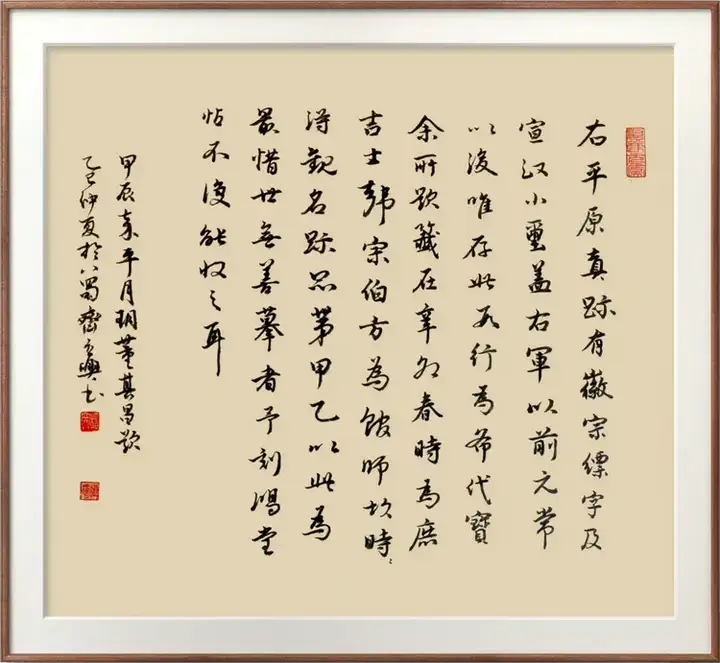 右平原真跡有徽宗縹字及
宣政小璽蓋右軍以前元常
以後唯存此數行為希代寶
余所題籤在辛卯春時為庶
吉士韓宗伯方為館師故時〻
得觀名跡品第甲乙以此為
最惜世無善摹者予刻鴻堂
帖不復能收之耳
甲辰嘉平月朔董其昌題
乙巳仲夏於八蜀齋興书